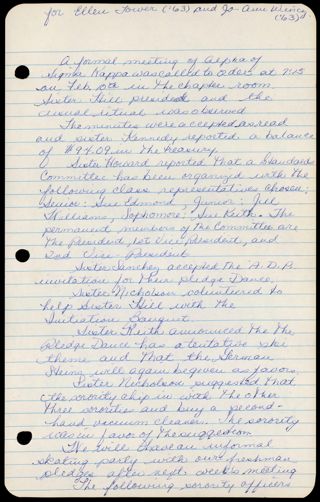 for Ellen Tower ('63) and Jo-Ann
('63)
A formal meeting of Alpha of
Sigma Kappa was called to order at 7:15
on Feb. in the chapter room.
Sister Hill presided and the
usual ritual was observed
The minutes were accepted as read
and sister Kennedy reported a balance
of $94.09 in the treasury.
Sister Howard reported that a Standards
Committee has been organized with the
following class representatives chosen;
Senior: Sue Edmond, Junior: Jill
Williams, Sophomore: Sue Keith. The
permanent members of the Committee are
the President, 1st Vice President, and
2nd Vice-President
Sister Sanchey accepted the A.D.P.
invitation for their Pledge Dance,
Sister Nicholson volunteered to
help Sister Hill with the
Initiation Banquet.
Sister Keith announced the the
Pledge Dance has a tentative ski
theme and that the German
Steins will again be given as favors,
Sister Nicholson suggested that
the sorority chip in with the other
three sororities and buy a second-
hand vacuum cleaner. The sorority
was in favor of the suggestion
We will have an informal
skating party with our freshman
pledges after next week's meeting
The following sorority officers